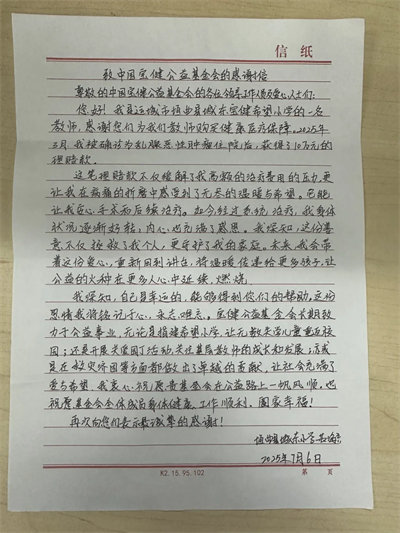 信纸
致中国宝健公益基金会的感谢信
尊敬的中国宝健公益基金会的各位领导工作人员及爱心人士们:
您好！我是运城市垣曲县城东宝健希望小学的一名
教师，感谢您们为我们教师购买健康医疗保障。2025年
3月，我被确诊为乳腺恶性肿瘤住院后，获得了10万元的
理赔款。
这笔理赔款不仅缓解了我高额的治疗费用的压力，更
让我在病痛的折磨中感受到了无尽的温暖与希望。也能
让我安心手术和后续治疗。如今经过系统治疗，我身体
状况逐渐好转，内心也充满了感恩。我深知，这份善
意不仅拯救了我个人，更守护了我的家庭。未来，我会带
着这份爱心，重新回到讲台，将温暖传递给更多孩子，让
公益的火种在更多人心中延续，燃烧。
我深知，自己是幸运的，能够得到你们的帮助，这份
恩情我将铭记于心，永志难忘。宝健公益基金会长期致
力于公益事业，无论是捐建希望小学，让无数失学儿童重返校
园；还是开展关爱园丁活动，关注基层教师的成长和发展；亦或
是在救灾济困等方面都做出了卓越的贡献，让社会充满了
爱与希望。我衷心祝愿贵基金会在公益路上一帆风顺，也
祝愿基金会全体成员身体健康、工作顺利、阖家幸福！
再次向您们表示最诚挚的感谢！
垣曲县城东小学
2025年7月6日
K2.15.95.102
第 页